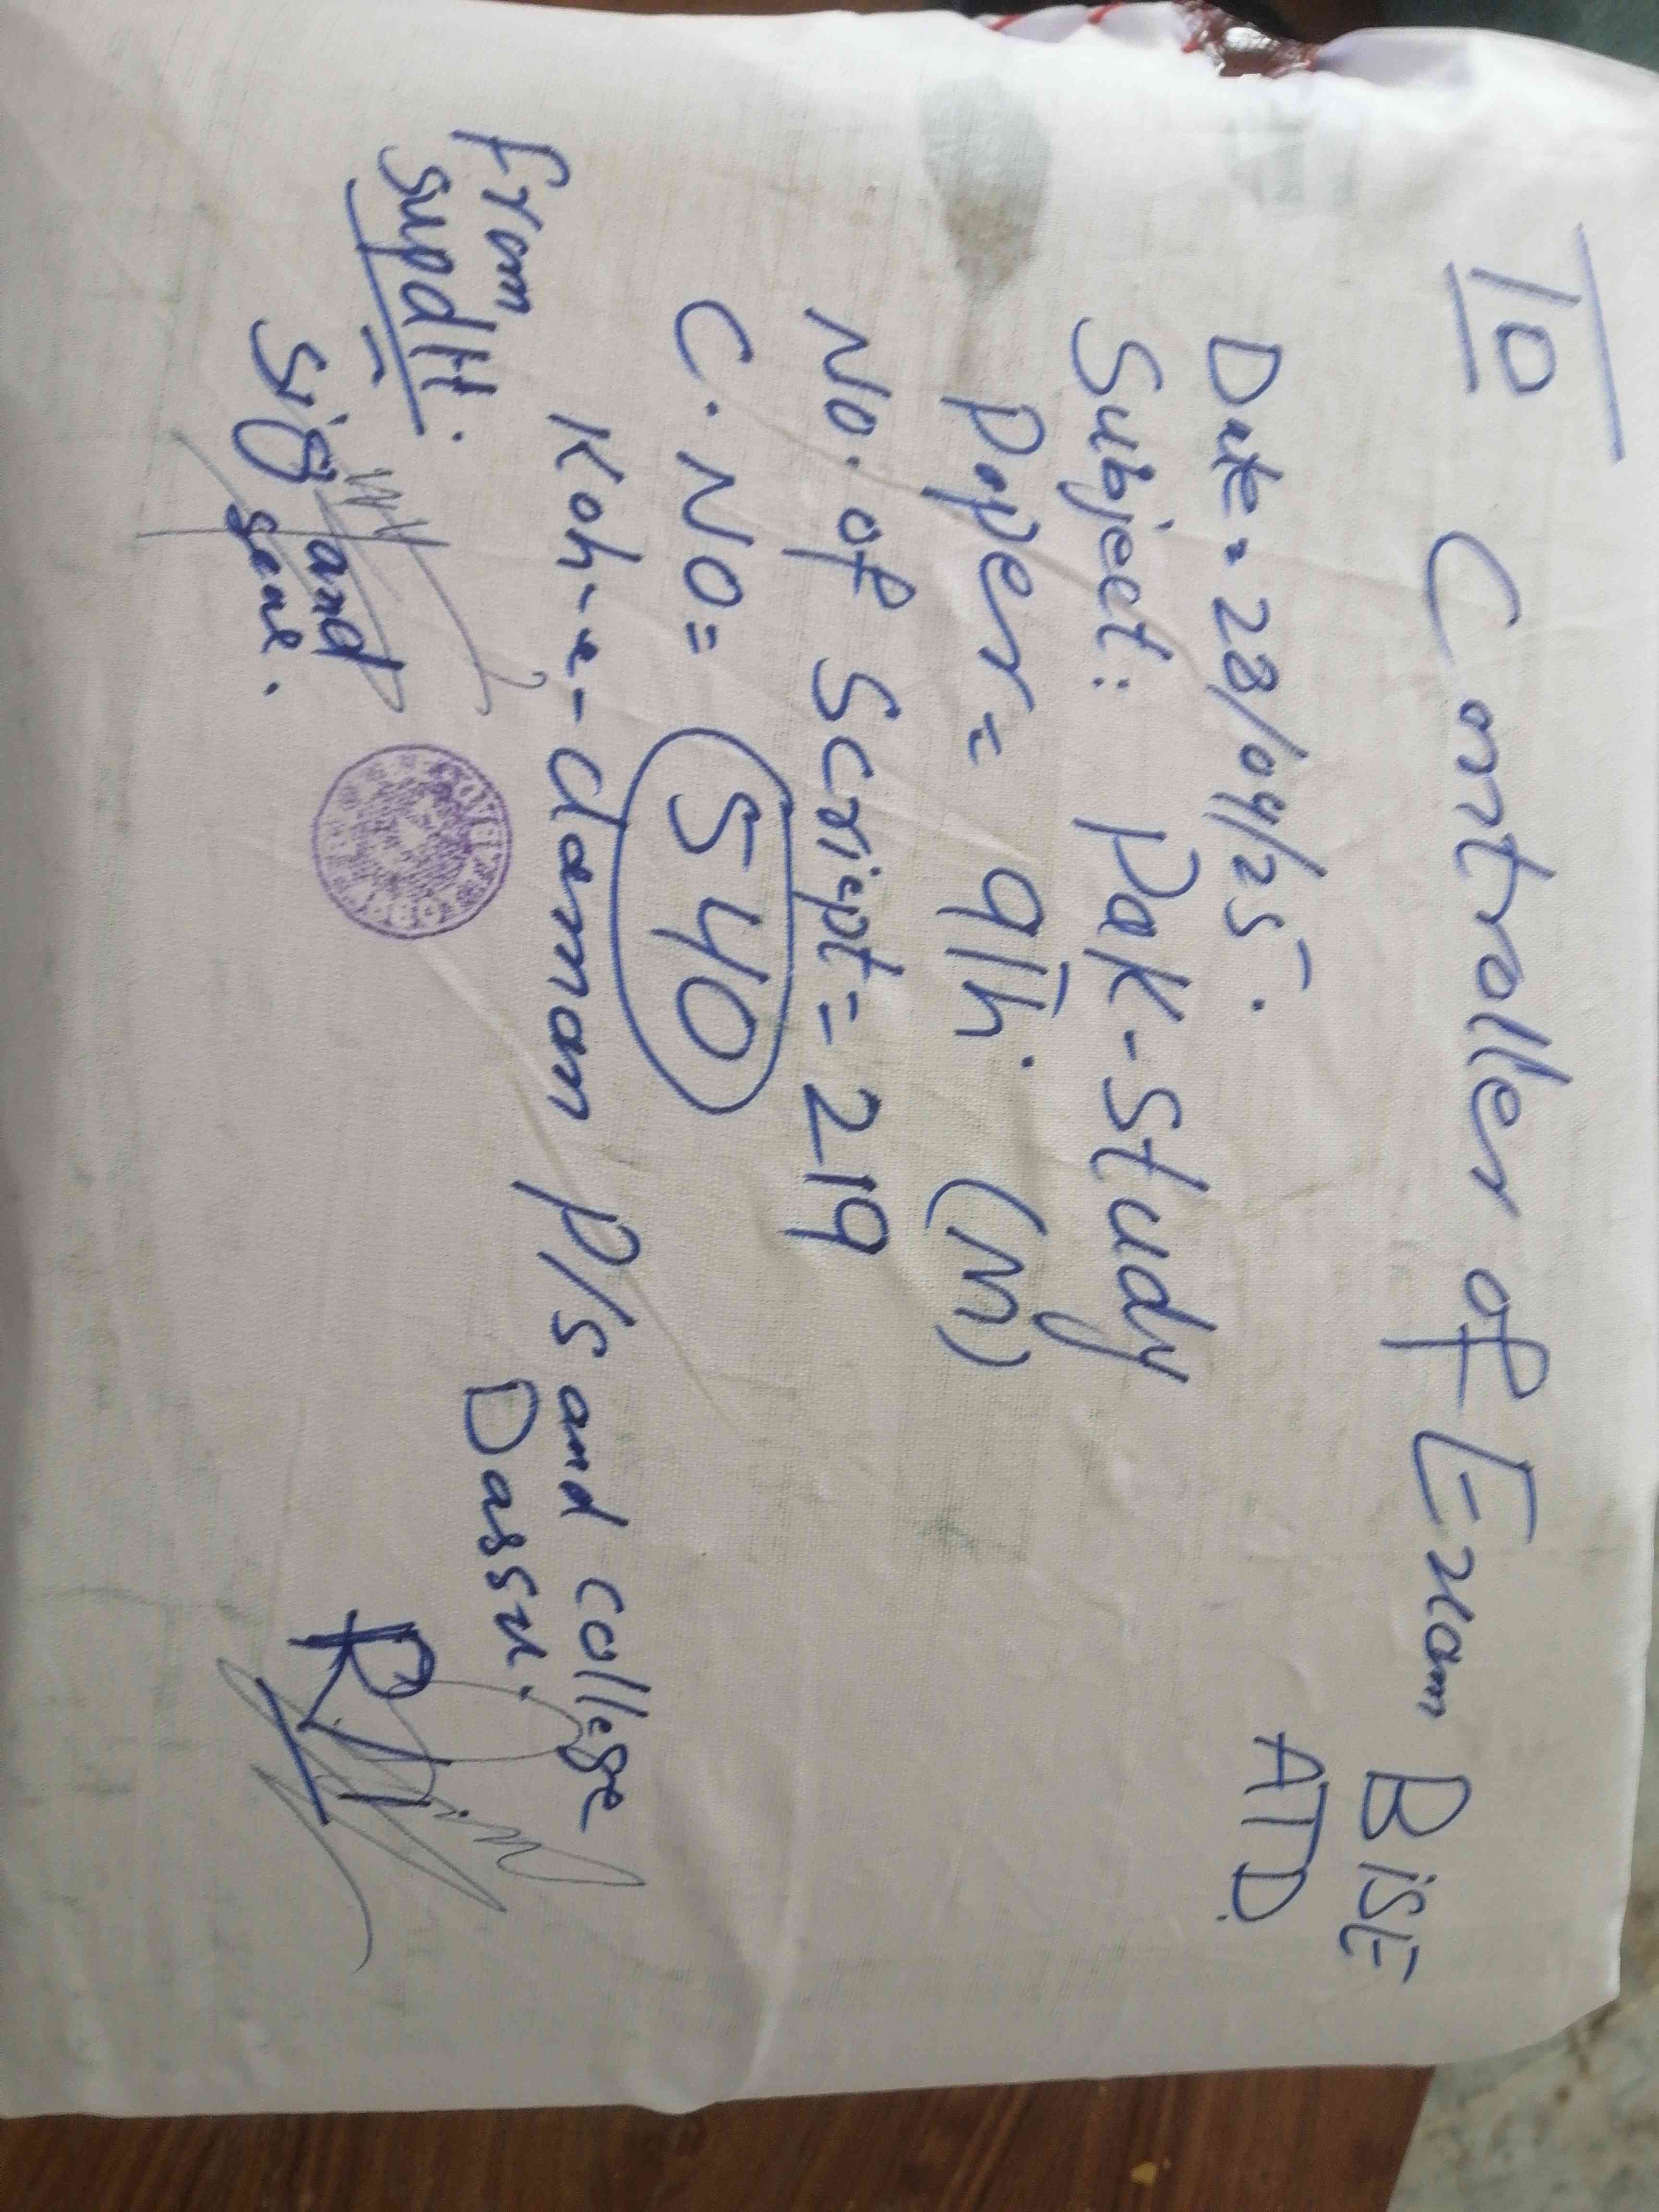 To
Controller of Exam BiSE
ATD.
Date = 28/04/25.
Subject: Pak-Study
Paper = 9th. (M)
No. of Script = 219
C.No = 540
Koh-e-daman P/s and college
Dassu.
From
Supdtt.
Sig and
Seal.